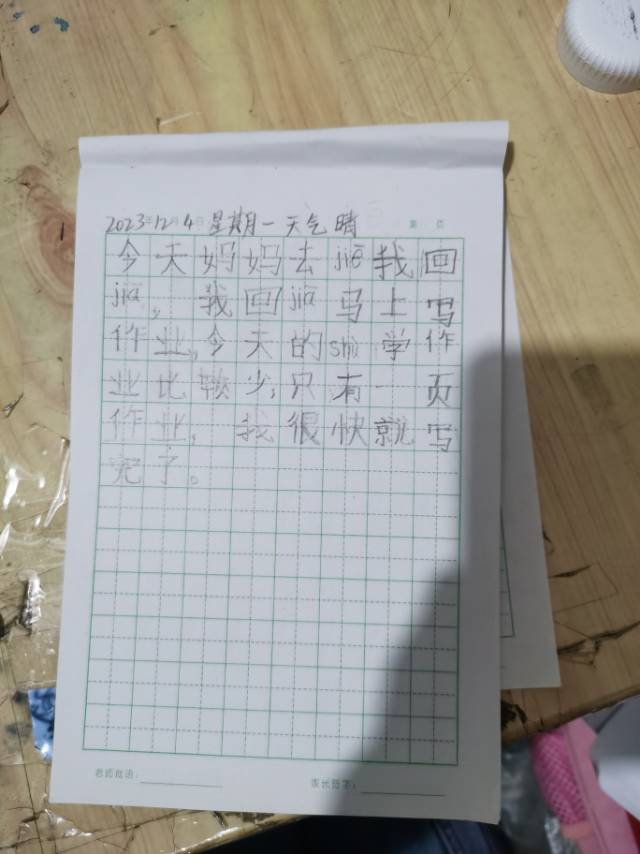 2023年12月4日 星期一 天气晴
第 页
今天妈妈去jiē我回
jiā，我回jiā马上写
作业，今天的shù学作
业比较少，只有一页
作业，我很快就写
完了。
老师批语：
家长签字：